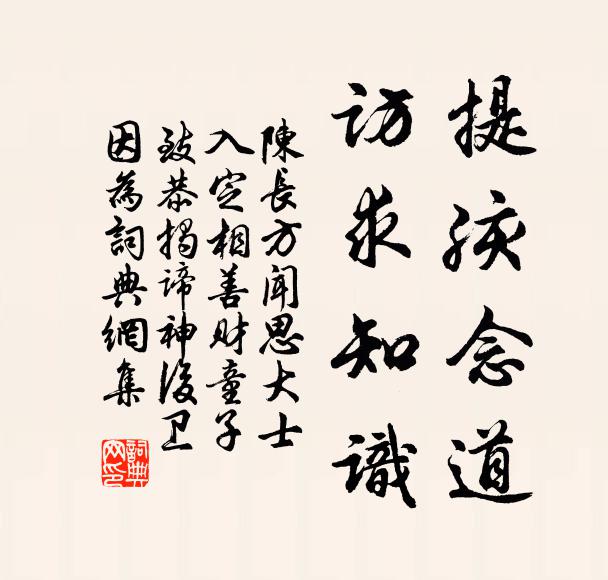 提孩念道
訪求知識
陳長方聞思大士
入定相善財童子
致恭揭諦神後卫
因為詞典網集
詞典
网印